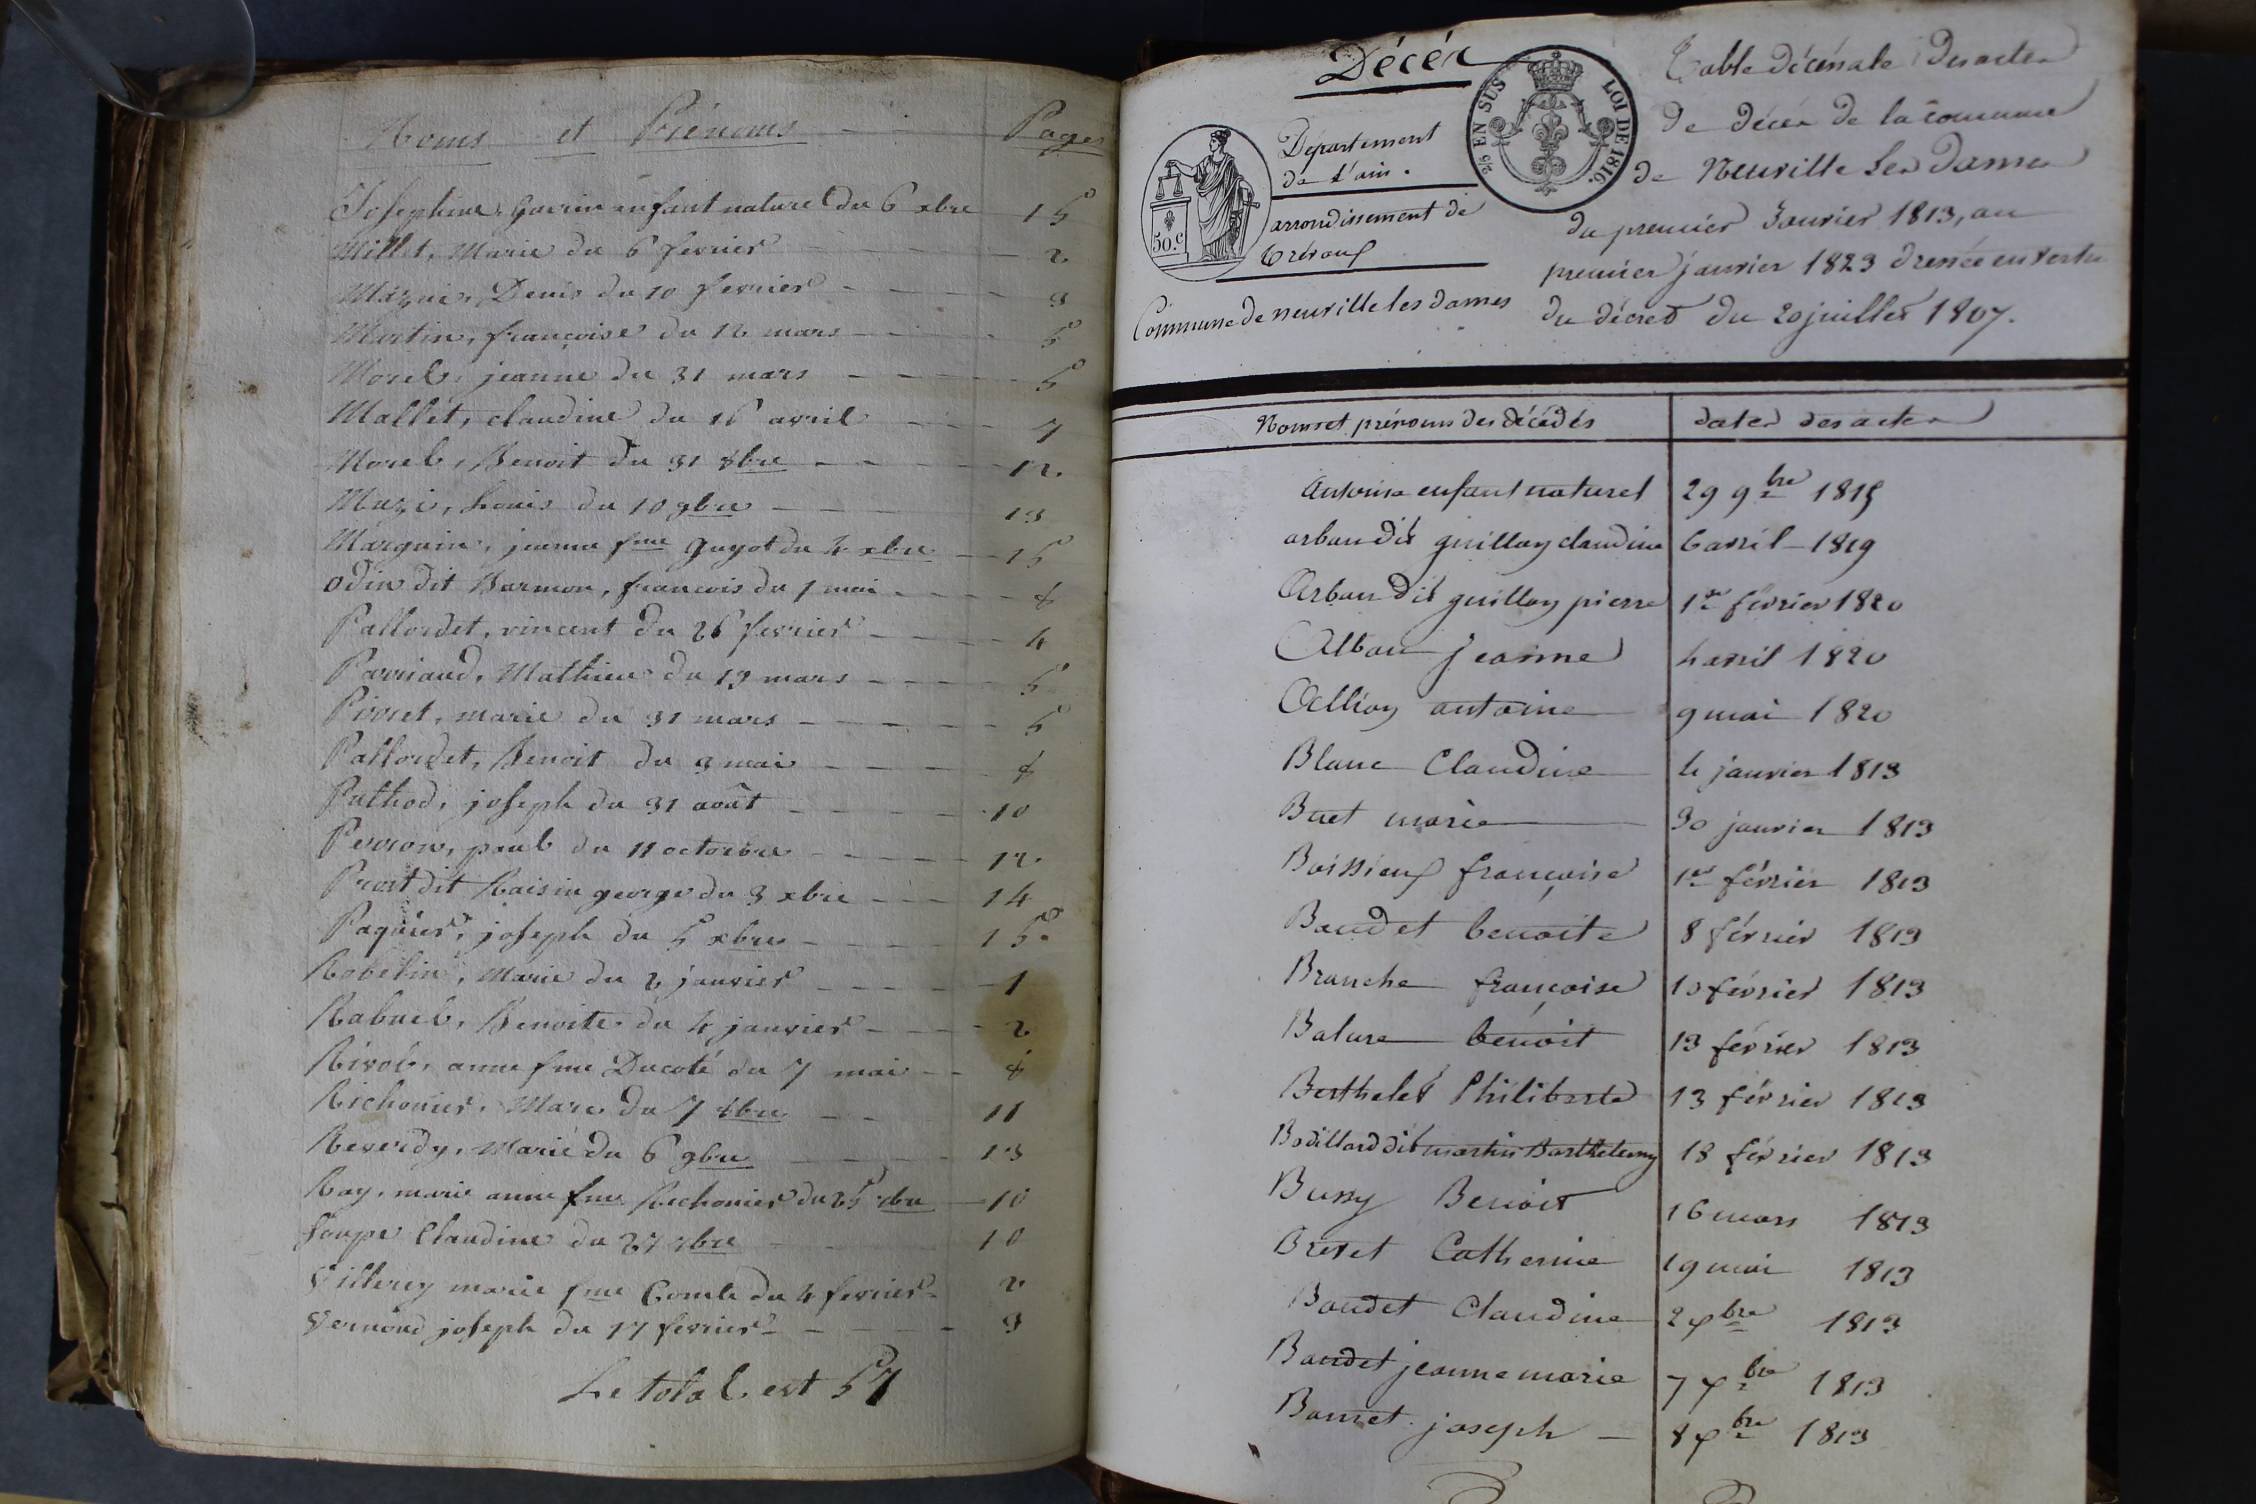 Noms et Prénoms Pages
Josephine, Guerin enfant naturel du 6 xbre 15
Millet, Marie du 6 fevrier 2
Mazuir, Denis du 10 fevrier 3
Martin, françoise du 12 mars 5
Morel, jeanne du 31 mars 5
Mallet, claudine du 16 avril 7
Morel, Benoit du 31 8bre 12.
Muzi, Louis du 10 9bre 13
Marguin, jeanne fme Guyot du 4 xbre 15
Odin dit Barmon, francois du 1 mai 8
Pallordet, vincent du 26 fevrier 4
Perriaud, Mathieu du 19 mars 5
Pivret, marie du 31 mars 5
Pallordet, Benoit du 9 mai 8
Puthod, joseph du 31 août 10
Perron, paul du 11 octobre 12.
Prost dit Raisin george du 3 xbre 14
Paquier, joseph du 5 xbre 15.
Robelin, Marie du 2 janvier 1
Rabuel, Benoite du 4 janvier 2
Rivol, anne fme Ducoté du 7 mai 8
Richonier, Marc du 7 8bre 11
Reverdy, Marie du 6 9bre 13
Ray, marie anne fme Richonier du 25 7bre 10
Soupe Claudine du 27 7bre 10
Villerey marie fme Comte du 4 fevrier 2
Vernoud joseph du 17 fevrier 3
Le total est 57
Décés
2/5 EN SUS LOI DE 1816.
50.c
Département
de l'ain.
arrondissement de
Trévoux
Commune de neuville les dames
Table décénale des actes
de décès de la commune
de Neuville les Dames
du premier Janvier 1813, au
premier janvier 1823 dressée en vertu
du décret du 20 juillet 1807.
Noms et prénoms des décédés dates des actes
Antoine enfant naturel 29 9bre 1815
arban dit guillon claudine 6 avril 1819
Arban dit guillon pierre 1er février 1820
Alban jeanne 4 avril 1820
Allion antoine 9 mai 1820
Blanc Claudine 4 janvier 1813
Buet marie 30 janvier 1813
Boissieux françoise 1er février 1813
Baudet benoite 8 février 1813
Branche françoise 10 février 1813
Balure benoit 13 février 1813
Berthelet Philiberte 13 février 1813
Bodillard dit martin Barthelemy 18 février 1813
Bussy Benoit 16 mars 1813
Brevet Catherine 19 mai 1813
Baudet Claudine 2 xbre 1813
Baudet jeanne marie 7 xbre 1813
Bonnet joseph 8 xbre 1813